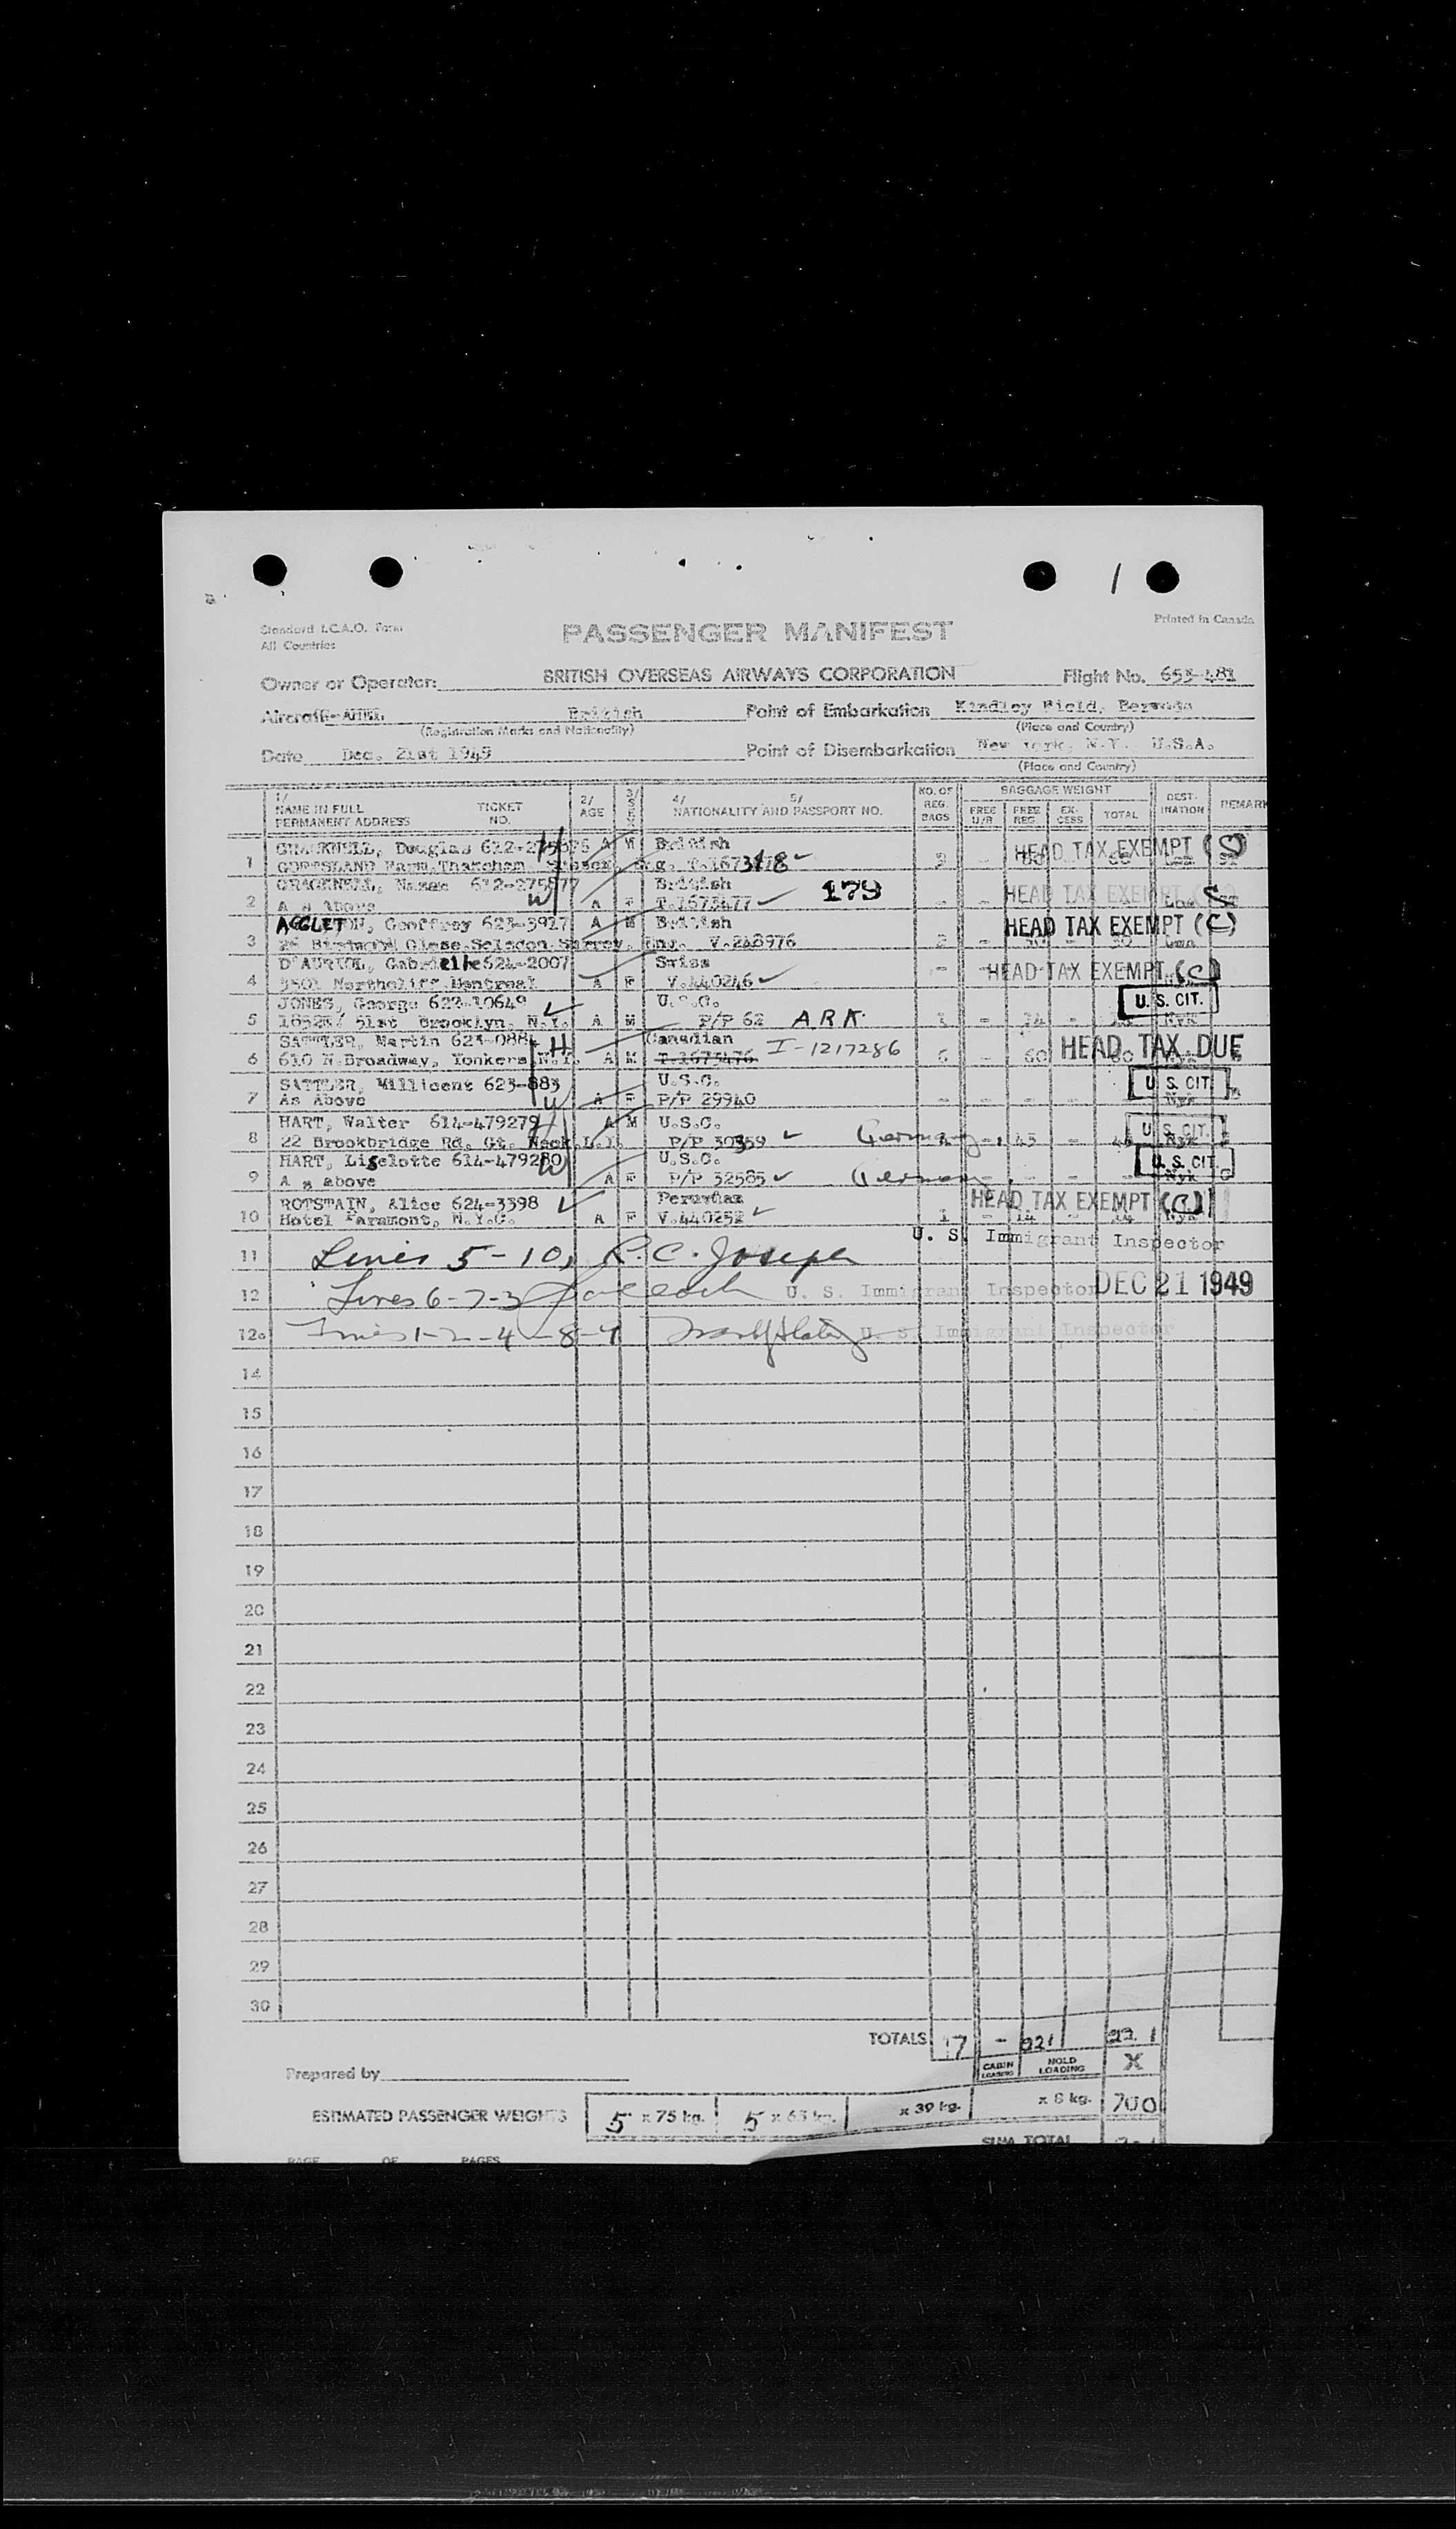 1
Standard I.C.A.O. Form
All Countries
PASSENGER MANIFEST
Printed in Canada
Owner or Operator: BRITISH OVERSEAS AIRWAYS CORPORATION Flight No. 653-481
Aircraft British Point of Embarkation Kindley Field, Bermuda
(Registration Marks and Nationality) (Place and Country)
Date Dec. 21st 1949 Point of Disembarkation New York, N.Y. U.S.A.
(Place and Country)
1/ NAME IN FULL PERMANENT ADDRESS TICKET NO. 2/ AGE 3/ SEX 4/ NATIONALITY AND 5/ PASSPORT NO. NO. OF REG. BAGS BAGGAGE WEIGHT FREE U/R FREE REG. EX-CESS TOTAL DEST-INATION REMARK
CRACKNELL, Douglas A M British
1 Farm Thatcham Eng. HEAD TAX EXEMPT (S)
CRACKNELL, British 179
2 A s above A F T.1673477 HEAD TAX EXEMPT
AGGLETON, Geoffrey 623-3927 A M British
3 Close Selsdon Surrey, Eng. V.248976 2 HEAD TAX EXEMPT (C)
D'AURIOL, Gabrielle 624-2007 Swiss
4 Northcliff Montreal A F V.440246 HEAD TAX EXEMPT (C)
JONES, George 622-10649 U.S.C. U. S. CIT.
5 51st Brooklyn, N.Y. A M P/P 62 ARK Nyk
SATTLER, Martin 623-0884 H Canadian
6 610 N.Broadway, Yonkers N.Y. A M T.1673476 I-1217286 6 - 60 HEAD TAX DUE
SATTLER, Millicent 623-883 U.S.C. U. S. CIT.
7 As Above W A F P/P 29940 - - - - - Nyk
HART, Walter 614-479279 A M U.S.C. U. S. CIT.
8 22 Brookbridge Rd, Gt. Neck L.I. P/P 30359 Germany - 45 - Nyk
HART, Liselotte 614-479280 U.S.C. U. S. CIT.
9 A s above W A F P/P 32585 Germany - - - Nyk
ROTSTAIN, Alice 624-3398 Peruvian HEAD TAX EXEMPT (C)
10 Hotel Paramont, N.Y.C. A F V.440252 1 - 14 - 14 Nyk
U. S. Immigrant Inspector
11 Lines 5-10, R.C. Joseph
12 Lines 6-7-3 U. S. Immigrant Inspector DEC 21 1949
12a Lines 1-2-4-8-9 U. S. Immigrant Inspector
14
15
16
17
18
19
20
21
22
23
24
25
26
27
28
29
30
TOTALS 17 - 221 221
CABIN LOADING HOLD LOADING X
Prepared by
ESTIMATED PASSENGER WEIGHTS 5 x 75 kg. 5 x 65 kg. x 39 kg. x 8 kg. 700
SUM TOTAL
PAGE OF PAGES